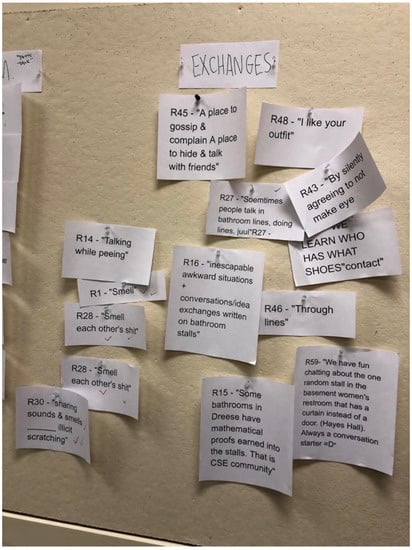 EXCHANGES
R45 - "A place to
gossip &
complain A place
to hide & talk
with friends"
R48 - "I like your
outfit"
R43 - "By silently
agreeing to not
make eye
R27 - "Soemtimes
people talk in
bathroom lines, doing
lines, juul"R27 -
WE
LEARN WHO
HAS WHAT
SHOES"contact")
R14 - "Talking
while peeing"
R1 - "Smell"
R16 - "inescapable
awkward situations
+
conversations/idea
exchanges written
on bathroom
stalls"
R28 - "Smell
each other's shit"
R46 - "Through
lines"
R28 - "Smell
each other's shit"
R30 - "sharing
sounds & smells
______ illicit
scratching"
R15 - "Some
bathrooms in
Dreese have
mathematical
proofs earned into
the stalls. That is
CSE community"
R59- "We have fun
chatting about the one
random stall in the
basement women's
restroom that has a
curtain instead of a
door. (Hayes Hall).
Always a conversation
starter =D"